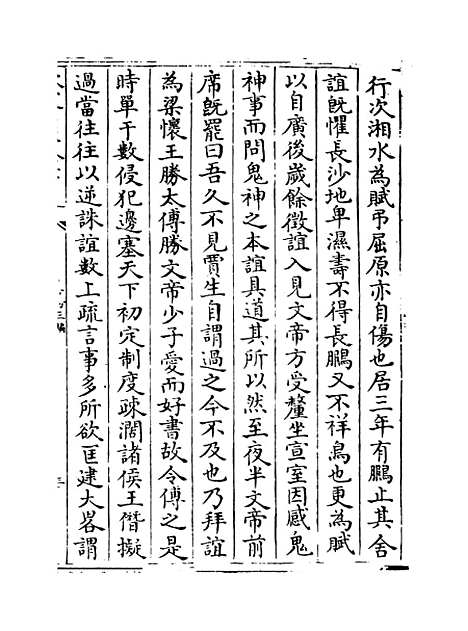 行次湘水為賦弔屈原亦自傷也居三年有鵬止其舍
誼旣懼長沙地卑濕壽不得長鵬又不祥鳥也更為賦
以自廣後歲餘徴誼入見文帝方受釐坐宣室因感鬼
神事而問鬼神之本誼具道其所以然至夜半文帝前
席旣罷曰吾久不見賈生自謂過之今不及也乃拜誼
為梁懷王勝太傅勝文帝少子愛而好書故令傅之是
時單于數侵犯邊塞天下初定制度疎濶諸侯王僭擬
過當往往以逆誅誼數上疏言事多所欲匡建大畧謂